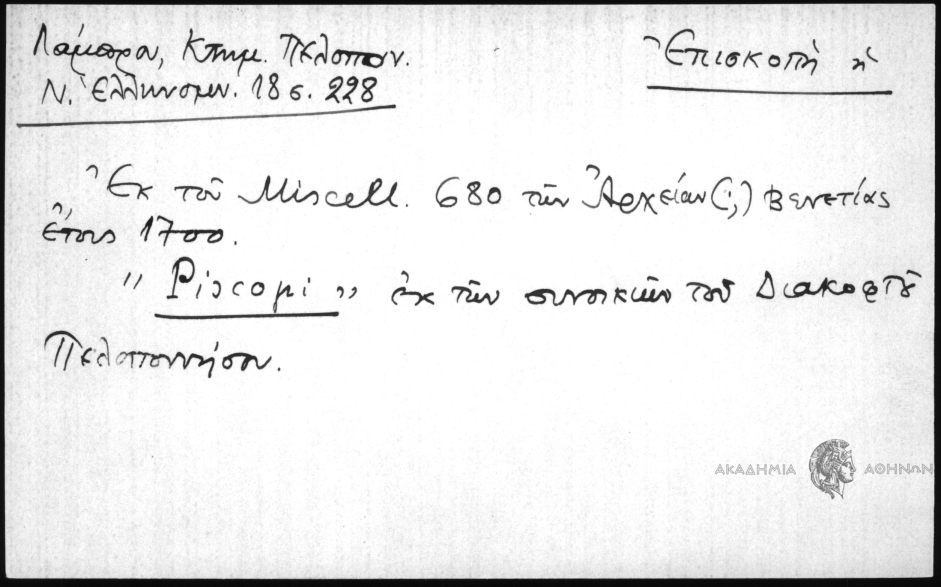 Λάμπρου, Κτημ. Πελοπον.
Ν. Ἑλληνομν. 18 σ. 228
Ἐπισκοπή ἡ
Ἐκ τοῦ Miscell. 680 τῶν Ἀρχείων (;) Βενετίας
ἔτους 1700.
" Piscopi " ἐκ τῶν συνοικιῶν τοῦ Διακοφτοῦ
Πελοποννήσου.
ΑΚΑΔΗΜΙΑ ΑΘΗΝΩΝ